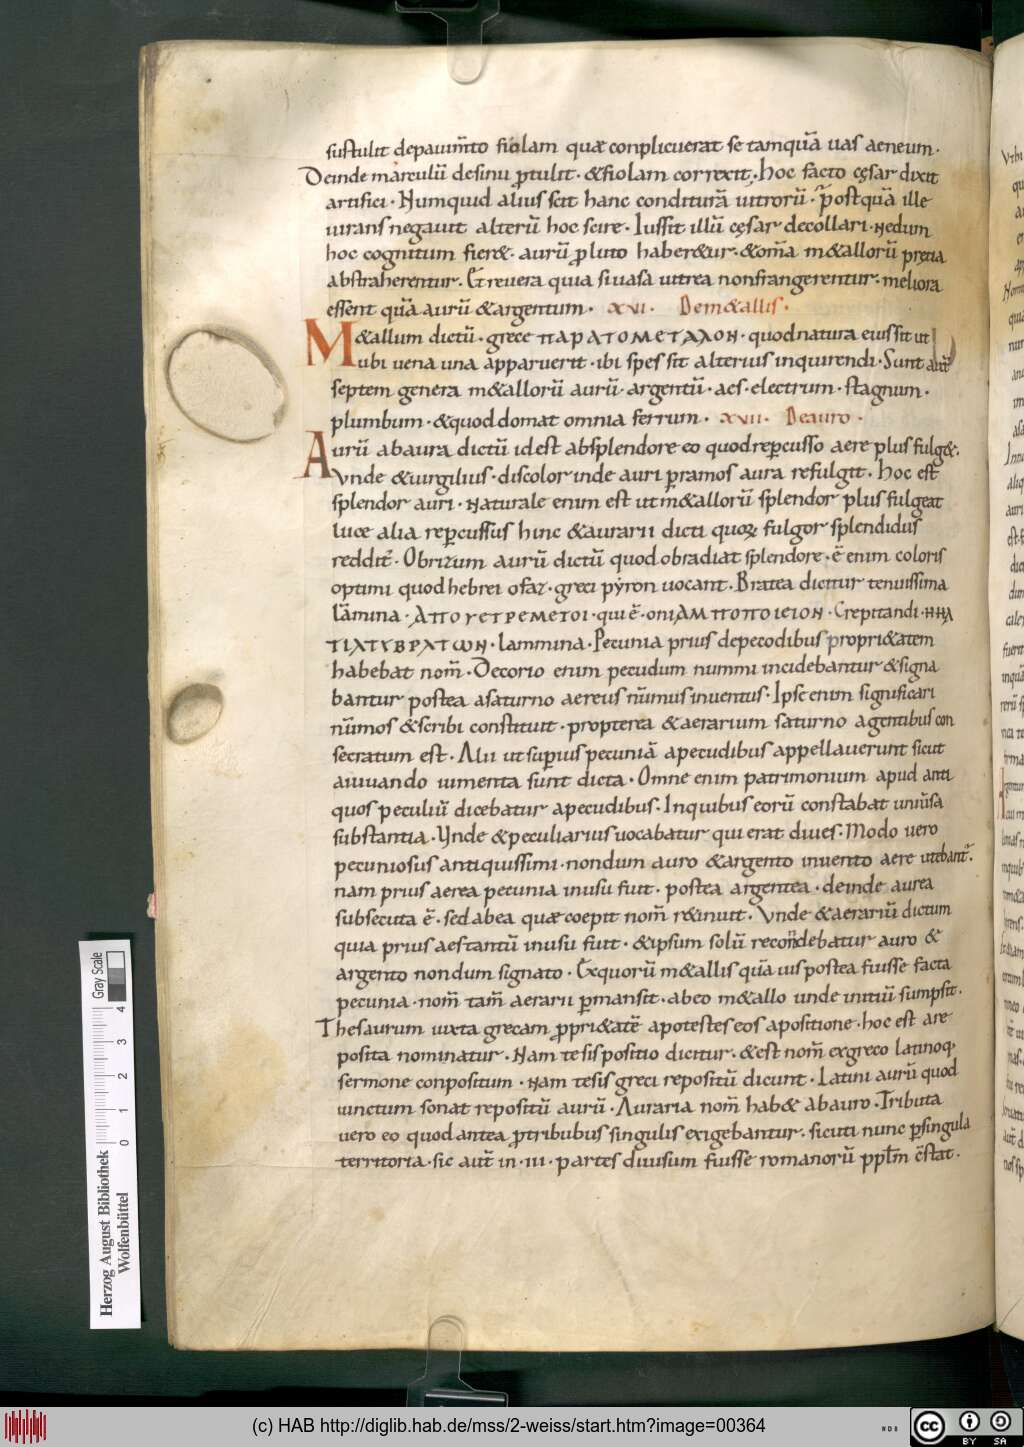 sustulit depauim̄to fiolam quæ conplicuerat se tamquā uas aeneum·
Deinde marculū desinu ꝓtulit· &fiolam correxit· hoc facto cęsar dixit
artifici· Numquid alius scit hanc conditurā uitrorū· p̄ostquā ille
iurans negauit alterū hoc scire· Iussit illū cęsar decollari· Nedum
hoc cognitum fier&· aurū ꝓluto haber&ur· &om̄a m&allorū pretia
abstraherentur· Et reuera quia siuasa uitrea nonfrangerentur· meliora
essent quā aurū &argentum· xvi· Dem&allis·
M&allum dictū· grece ΠΑΡΑΤΟΜΕΤΑΛΟΝ· quodnatura eius sit ut
ubi uena una apparuerit· ibi spes sit alterius inquirendi· Sunt aut̄
septem genera m&allorū aurū· argentū· aes· electrum· stagnum·
plumbum· &quod domat omnia ferrum· xvii· Deauro·
Aurū abaura dictū idest absplendore eo quodreꝑcusso aere plus fulg&·
Vnde &uirgilius· discolor inde auri ꝑramos aura refulgit· hoc est
splendor auri· Naturale enim est utm&allorū splendor plus fulgeat
luce alia reꝑcussus hinc &aurarii dicti quoꝝ fulgor splendidus
reddit̄· Obrizum aurū dictū quod obradiat splendore· ē enim coloris
optimi quod hebrei ofaz· greci pyron uocant· Bratea dicitur tenuissima
lāmina· ΑΠΟΥΕΤΡΕΜΕΤΟΙ· qui ē· ΟΝΙΑΜΠΟΠΟΙΕΙΟΝ· Crepitandi· ΗΗΑ
ΤΙΑΤΥΒΡΑΤΩΝ· lammina· Pecunia prius depecodibus propri&atem
habebat nom̄· Decorio enim pecudum nummi incidebantur &signa
bantur postea asaturno aereus nūmus inuentus· Ipse enim significari
nūmos &scribi constituit· propterea &aerarium saturno agentibus con
secratum est· Alii ut suꝑius pecuniā apecudibus appellauerunt sicut
aiuuando iumenta sunt dicta· Omne enim patrimonium apud anti
quos peculiū dicebatur apecudibus· Inquibus eorū constabat uniūsa
substantia· Vnde &peculiarius uocabatur qui erat diues· Modo uero
pecuniosus antiquissimi· nondum auro &argento inuento aere utebant̄·
nam prius aerea pecunia inusu fuit· postea argentea· deinde aurea
subsecuta ē· sed abea quæ coepit nom̄ r&inuit· Vnde &aerariū dictum
quia prius aestantū inusu fuit· &ipsum solū recondebatur auro &
argento nondum signato· Exquorū m&allis quā uis postea fuisse facta
pecunia· nom̄ tam̄ aerarii ꝑmansit· abeo m&allo unde initiū sumpsit·
Thesaurum iuxta grecam ꝓpri&atē apotestes eos apositione· hoc est are
posita nominatur· Nam tesis positio dicitur· &est nom̄ exgreco latinoq·
sermone conpositum· Nam tesis greci repositū dicunt· Latini aurū quod
iunctum sonat repositū aurū· Auraria nom̄ hab& abauro· Tributa
uero eo quod antea ꝓtribubus singulis exigebantur· sicuti nunc ꝑsingula
territoria· sic aut̄ in ·iii· partes diuisum fuisse romanorū ppl̄m c̄stat·
Gray Scale
4
3
2
1
0
Herzog August Bibliothek
Wolfenbüttel
(c) HAB http://diglib.hab.de/mss/2-weiss/start.htm?image=00364
cc BY SA